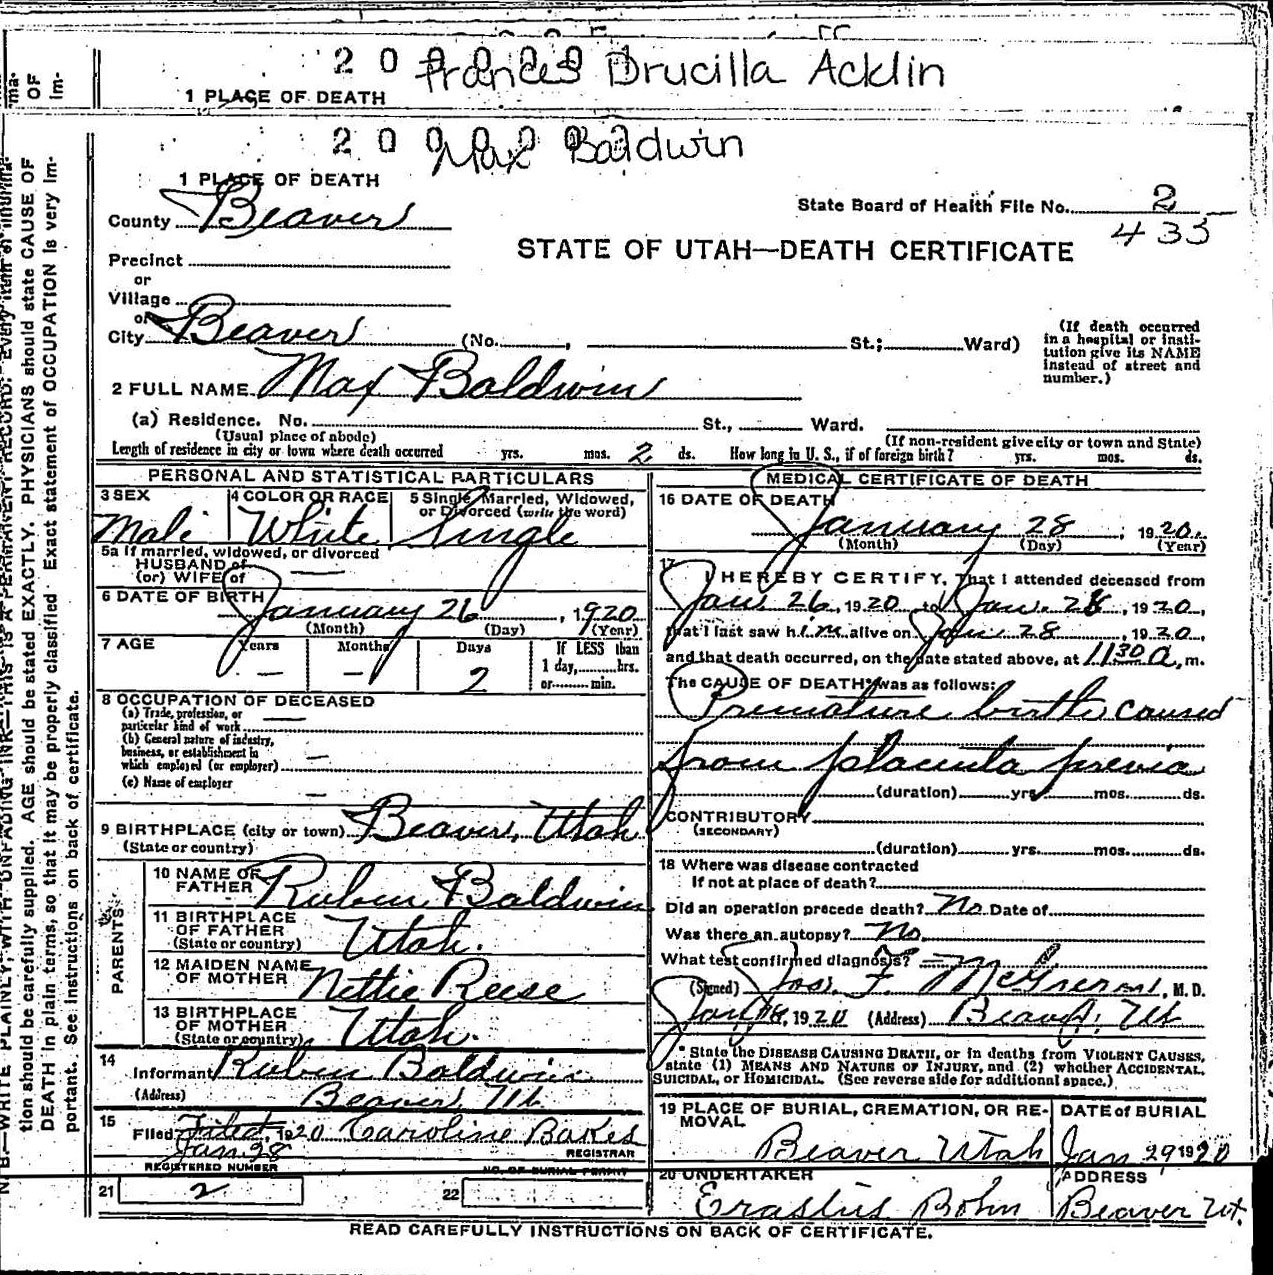 ma-
OF
Im-
2 0 0 0 0 0 Frances Drucilla Acklin
1 PLACE OF DEATH
2 0 0 0 0 0 Max Baldwin
1 PLACE OF DEATH
County Beaver
State Board of Health File No. 2
435
STATE OF UTAH—DEATH CERTIFICATE
Precinct
or
Village
or
City Beaver (No. , St.; Ward)
(If death occurred
in a hospital or insti-
tution give its NAME
instead of street and
number.)
2 FULL NAME Max Baldwin
(a) Residence. No. St., Ward.
(Usual place of abode) (If non-resident give city or town and State)
Length of residence in city or town where death occurred yrs. mos. 2 ds. How long in U. S., if of foreign birth? yrs. mos. ds.
PERSONAL AND STATISTICAL PARTICULARS
3 SEX 4 COLOR OR RACE 5 Single, Married, Widowed,
or Divorced (write the word)
Male White Single
5a If married, widowed, or divorced
HUSBAND of
(or) WIFE of —
6 DATE OF BIRTH
January 26, 1920
(Month) (Day) (Year)
7 AGE Years Months Days If LESS than
1 day, hrs.
or min.
— — 2
8 OCCUPATION OF DECEASED
(a) Trade, profession, or
particular kind of work —
(b) General nature of industry,
business, or establishment in
which employed (or employer) —
(c) Name of employer —
9 BIRTHPLACE (city or town) Beaver, Utah
(State or country)
PARENTS
10 NAME OF
FATHER Ruben Baldwin
11 BIRTHPLACE
OF FATHER
(State or country) Utah.
12 MAIDEN NAME
OF MOTHER Nettie Reese
13 BIRTHPLACE
OF MOTHER
(State or country) Utah.
14
Informant Ruben Baldwin
(Address) Beaver, Ut.
15
Filed Filed, 1920 Caroline Bakes
Jan 28 REGISTRAR
REGISTERED NUMBER NO. OF BURIAL PERMIT
21 2 22
MEDICAL CERTIFICATE OF DEATH
16 DATE OF DEATH
January 28, 1920.
(Month) (Day) (Year)
17
I HEREBY CERTIFY, That I attended deceased from
Jan. 26, 1920, to Jan. 28, 1920,
that I last saw him alive on Jan 28, 1920,
and that death occurred, on the date stated above, at 1130 a, m.
The CAUSE OF DEATH* was as follows:
Premature birth caused
from placenta previa
(duration) yrs. mos. ds.
CONTRIBUTORY
(SECONDARY)
(duration) yrs. mos. ds.
18 Where was disease contracted
If not at place of death?
Did an operation precede death? No Date of
Was there an autopsy? No.
What test confirmed diagnosis? —
(Signed) Jas. F. M. D.
Jan 1920 (Address) Beaver, Ut
* State the DISEASE CAUSING DEATH, or in deaths from VIOLENT CAUSES,
state (1) MEANS AND NATURE OF INJURY, and (2) whether ACCIDENTAL,
SUICIDAL, or HOMICIDAL. (See reverse side for additional space.)
19 PLACE OF BURIAL, CREMATION, OR RE-
MOVAL DATE of BURIAL
Beaver Utah Jan 29 1920
20 UNDERTAKER ADDRESS
Erastus Bohn Beaver Ut.
READ CAREFULLY INSTRUCTIONS ON BACK OF CERTIFICATE.
tion should be carefully supplied. AGE should be stated EXACTLY. PHYSICIANS should state CAUSE OF
DEATH in plain terms, so that it may be properly classified. Exact statement of OCCUPATION is very im-
portant. See instructions on back of certificate.